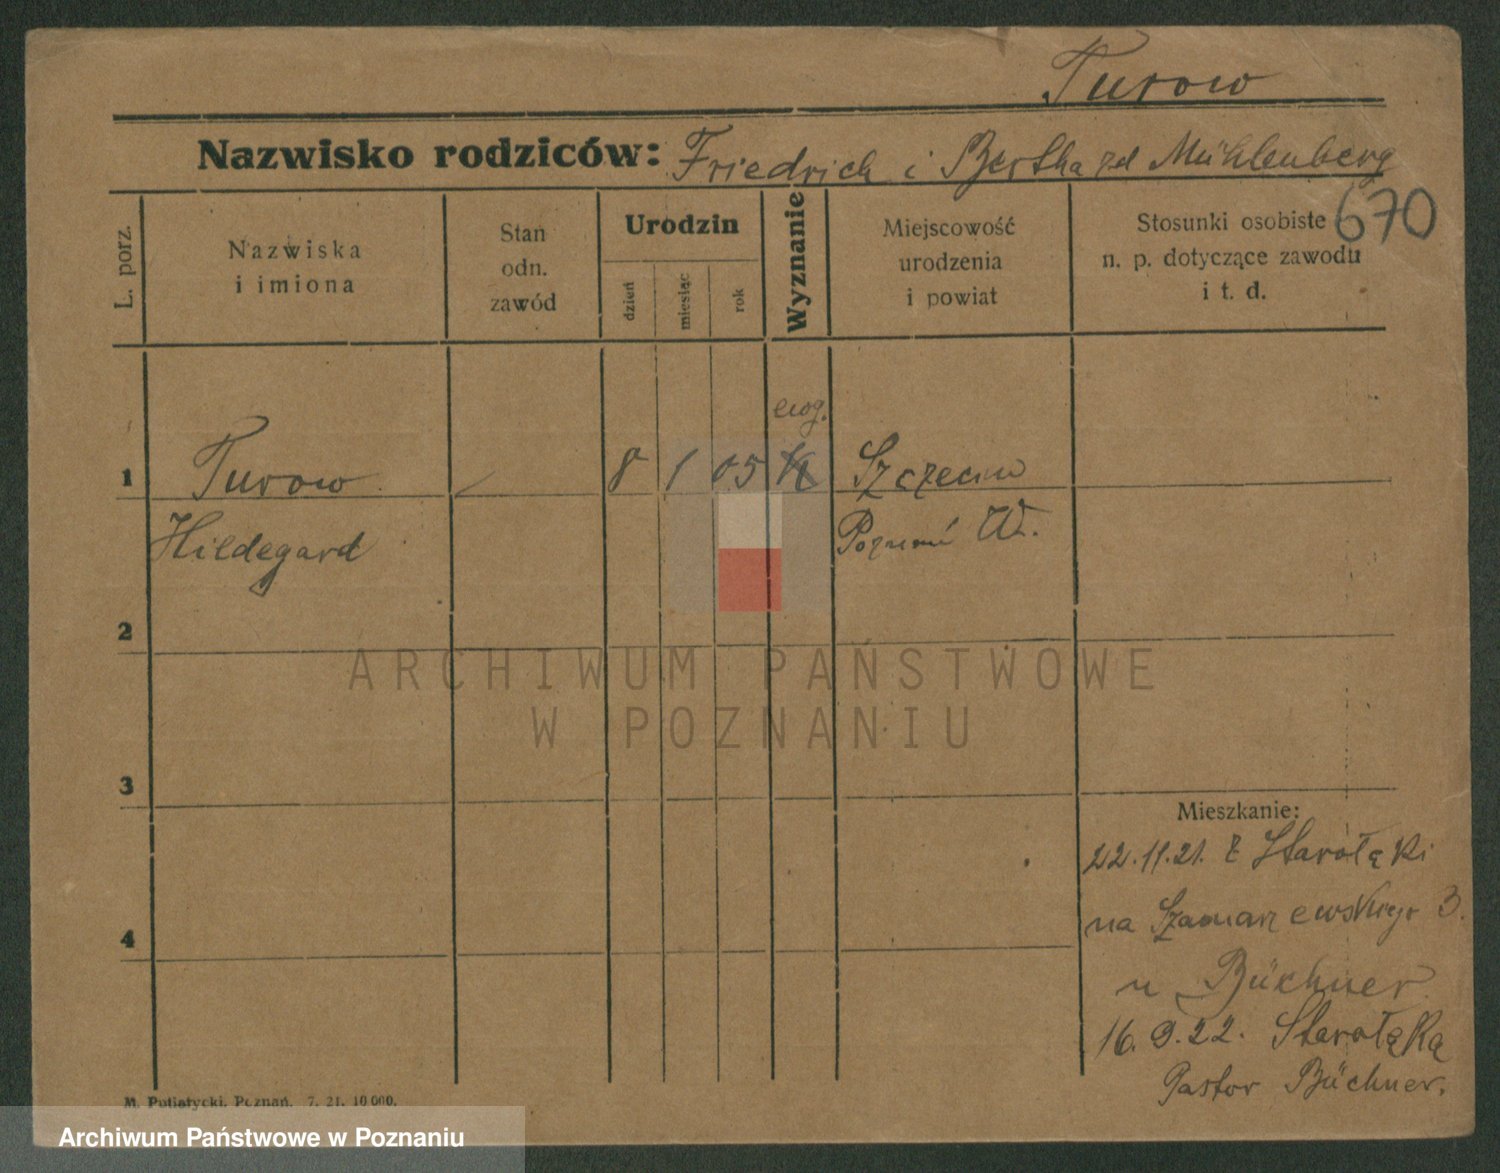 Turow
Nazwisko rodziców: Friedrich i Bertha zd Mühlenberg
670
L. porz.
Nazwiska
i imiona
Stan
odn.
zawód
Urodzin
dzień
miesiąc
rok
Wyznanie
Miejscowość
urodzenia
i powiat
Stosunki osobiste
n. p. dotyczące zawodu
i t. d.
ewg.
1 Turow 8 1 05 K Szczecin
Hildegard Poznań W.
2
3
4
Mieszkanie:
22.11.21. z Starołęki
na Szamarzewskiego 3.
u Büchner
16.9.22. Starołęka
Pastor Büchner.
M. Putiatycki, Poznań. 7. 21. 10 000.
ARCHIWUM PAŃSTWOWE
W POZNANIU
Archiwum Państwowe w Poznaniu